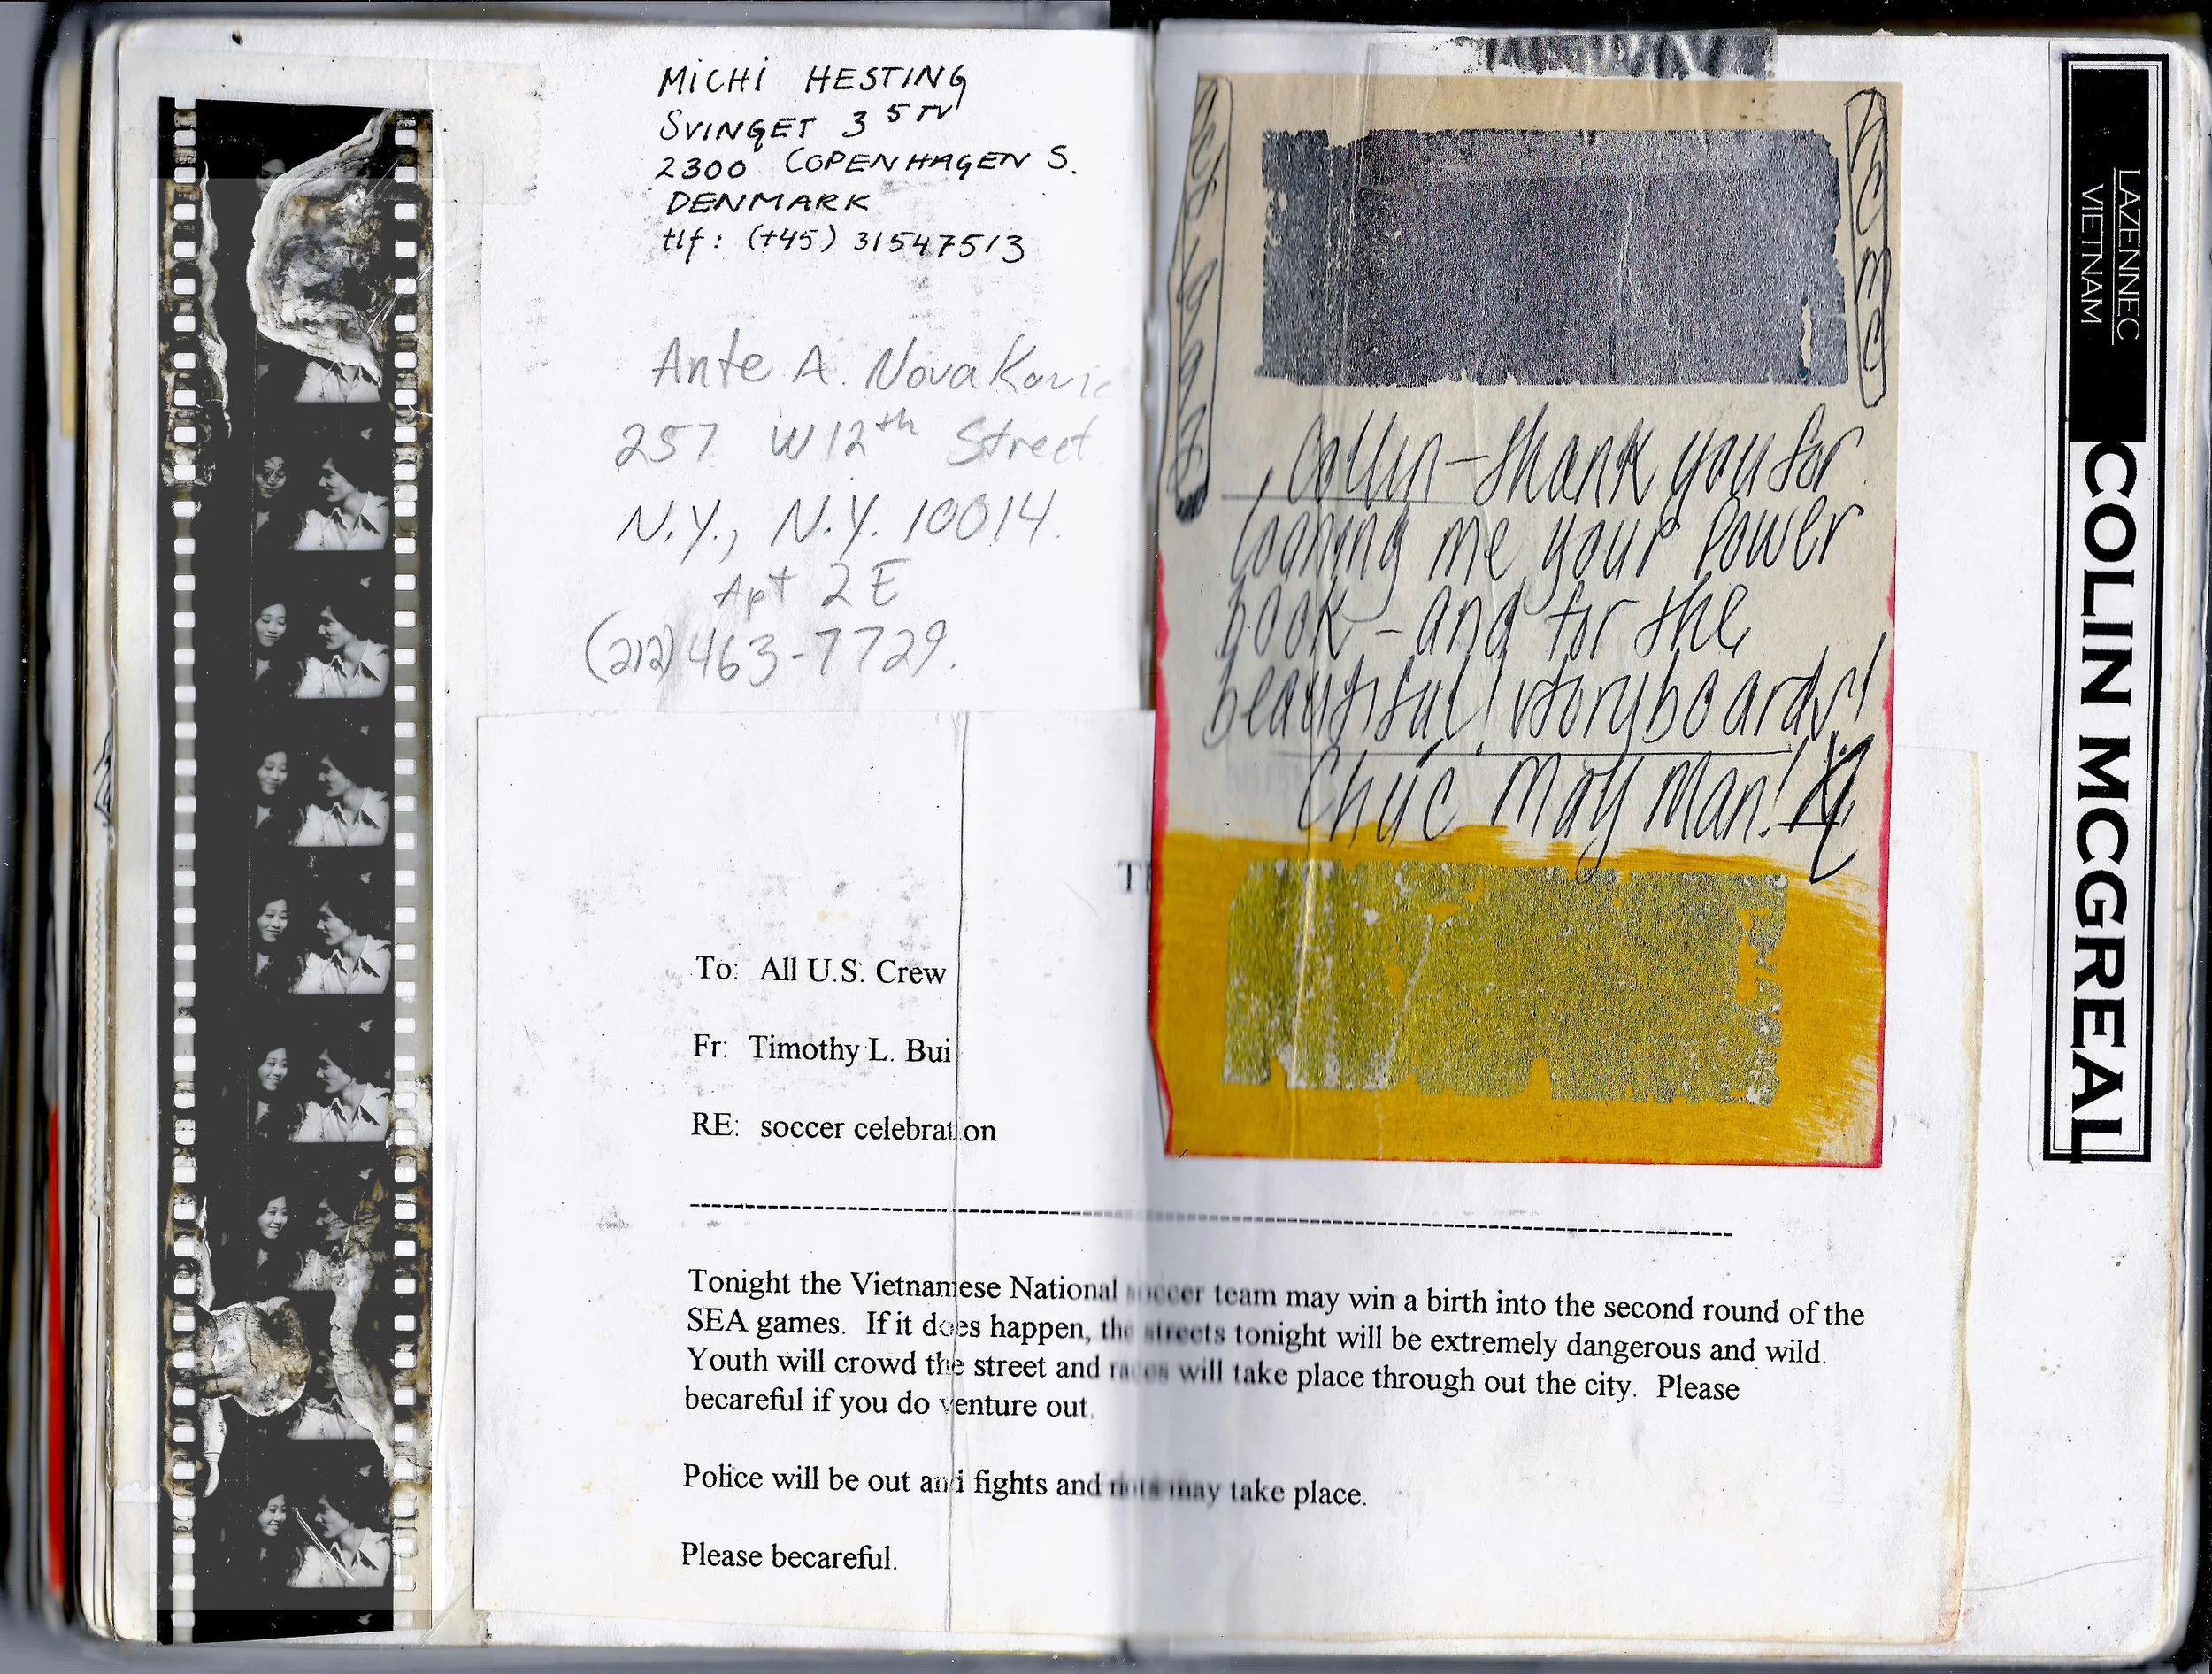 MiCHi HESTING
SVINGET 3 5 TV
2300 COPENHAGEN S.
DENMARK
tlf: (+45) 31547513
Ante A. Novakovic
257 W 12th Street
N.Y., N.Y. 10014.
Apt 2E
(212) 463-7729.
To: All U.S. Crew
Fr: Timothy L. Bui
RE: soccer celebration
Tonight the Vietnamese National soccer team may win a birth into the second round of the
SEA games. If it does happen, the streets tonight will be extremely dangerous and wild.
Youth will crowd the street and races will take place through out the city. Please
becareful if you do venture out.
Police will be out and fights and riots may take place.
Please becareful.
Collin - thank you for
loaning me your power
book - and for the
beautiful! storyboards!
Chúc May Man!
LAZENNEC
VIETNAM
COLIN MCGREAL